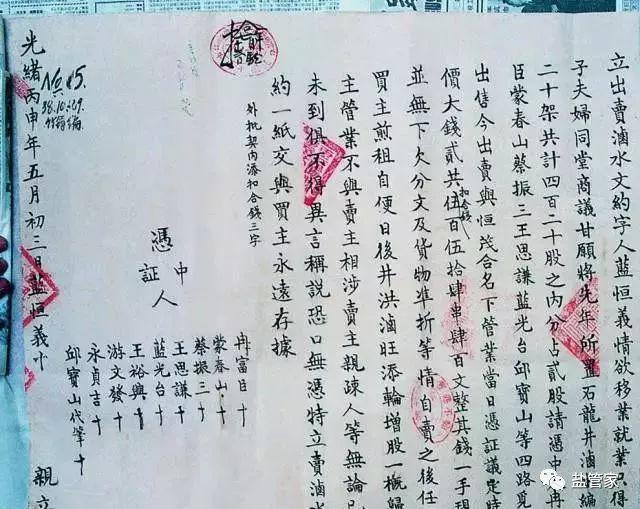 立出卖滷水文約字人藍恒義情欲移業就業只得
子夫婦同堂商議甘願將先年所置石龍井滷
二十架共計四百二十股之內分占貳股請憑中冉
臣蒙春山蔡振三王思謙藍光台邱寶山等四路覓
出售今出賣與恒茂合名下管業當日憑証議定時
價大錢貳共扣合錢伍百伍拾肆串肆百文整其錢一手現
並無下欠分文及貨物準折等情自賣之後任
買主煎租自便日後井洪滷旺添輪增股一概歸
主管業不與賣主相涉賣主親疎人等無論已
未到俱不得異言稱說恐口無憑特立賣滷水
約一紙交與買主永遠存據
外批契內添扣合錢三字
憑中証人
冉富臣十
蒙春山十
蔡振三十
王思謙十
藍光台十
王裕興十
游文發十
永貞吉十
邱寶山代筆十
No.15.
38.10.29.
光緒丙申年五月初三日藍恒義十
親立
盐管家